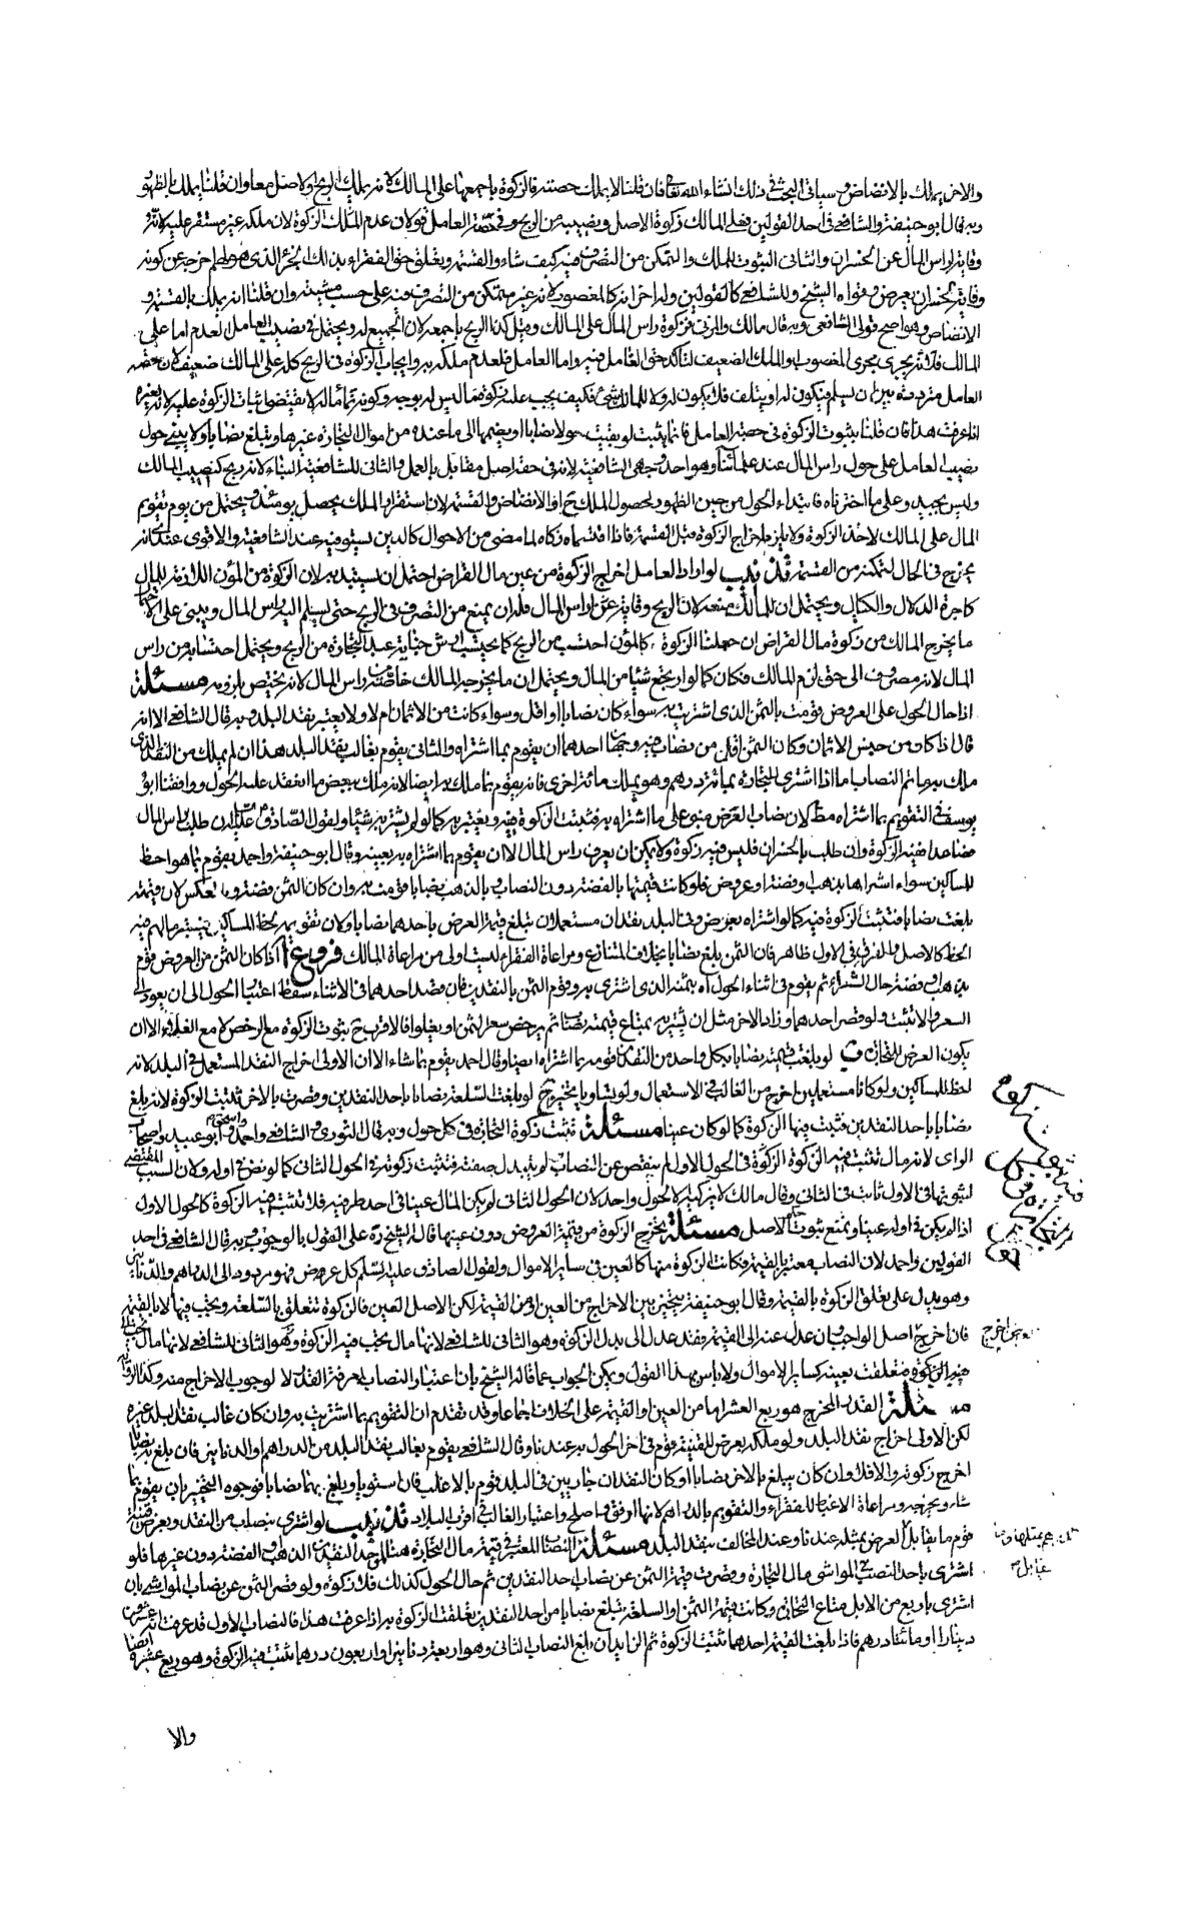 والاخر يملك بالانضاض وسياتى البحث فى ذلك انشاء الله تعالى فان قلنا لا يملك حصته فالزكوة باجمعها على المالك لانه يملك الربح والاصل معا وان قلنا يملك بالظهور
وبه قال ابو حنيفة والشافعى فى احد القولين فعلى المالك زكوة الاصل ونصيبه من الربح وفى حصة العامل قولان عدم المالك الزكوة لان ملكه غير مستقر عليه لانه
وقاية لراس المال عن الخسران والثانى الثبوت للملك والتمكن من التصرف فيه كيف شاء والقسمة وتعلق حق الفقراء بذلك الجزء الذى هو لهم اخرجه عن كونه
وقاية لخسران يعرض وقواه الشيخ وللشافعى كالقولين وله اخر انه كالمغصوب لانه غير متمكن من التصرف فيه على حسب مشيته وان قلنا انه يملك بالقسمة و
الانضاض وهو اصح قولى الشافعى وبه قال مالك والمزنى فزكوة راس المال على المالك وقيل كذا الربح باجمعه لان الجميع له ويحتمل فى نصيب العامل العدم اما على
المالك فلانه يجرى مجرى المغصوب والملك الضعيف لتاكد حق العامل فيه واما العامل فلعدم ملكه به وايجاب الزكوة فى الربح كله على المالك ضعيف لان حصة
العامل مترددة بين ان يسلم فيكون له او يتلف فلا يكون له ولا للمالك شئ فكيف يجب عليه زكوة مال ليس له بوجه وكونه نماء ماله لا يقتضى اثبات الزكوة عليه لانه لغيره
اذا عرفت هذا فان قلنا بثبوت الزكوة فى حصة العامل فانما يثبت لو بقيت حولا نصابا او يضمها الى ما عنده من اموال التجارة غيرها ويبلغ نصابا ولا يبنى حول
نصيب العامل على حول راس المال عند علمائنا وهو احد وجهى الشافعية لانه فى حقه اصل مقابل بالعمل والثانى للشافعية البناء لانه ربح كنصيب المالك
وليس بجيد وعلى ما اخترناه فابتداء الحول من حين الظهور لحصول الملك ح او الانضاض والقسمة لان استقرار الملك يحصل يومئذ ويحتمل من يوم تقويم
المال على المالك لاخذ الزكوة ولا يلزمه اخراج الزكوة قبل القسمة فاذا اقتسماه زكاه لما مضى من الاحوال كالدين يستوفيه عند الشافعية والاقوى عندى انه
يخرج فى الحال لتمكنه من القسمة تذنيب لو اراد العامل اخراج الزكوة من عين مال القراض احتمل ان يستبد به لان الزكوة من المؤن اللازمة للمال
كاجرة الدلال والكيال ويحتمل ان للمالك منعه لان الربح وقاية عن راس المال فله ان يمنع من التصرف فى الربح حتى يسلم اليه راس المال ويبنى على الاحتمالين
ما يخرج المالك من زكوة مال القراض ان جعلنا الزكوة كالمؤن احتسب من الربح كما يحتسب ارش جناية عبد التجارة من الربح ويحتمل احتسابه من راس
المال لانه مصروف الى حق لزم المالك فكان كما لو ارتجع شيئا من المال ويحتمل ان ما يخرجه المالك خاصة من راس المال لانه يختص بلزومه مسئلة
اذا حال الحول على العروض قومت بالثمن الذى اشتريت به سواء كان نصابا او اقل وسواء كانت من الاثمان ام لا ولا يعتبر نقد البلد وبه قال الشافعى الا انه
قال اذا كان من جنس الاثمان وكان الثمن اقل من نصاب فيه وجهان احدهما ان يقوم بما اشتراه والثانى يقوم بغالب نقد البلد هذا ان لم يملك من النقد الذى
ملك به ما يتم النصاب اما اذا اشترى للتجارة بمائة درهم وهو يملك مائة اخرى فانه يقوم بما ملك به ايضا لانه ملك ببعض ما انعقد عليه الحول ووافقنا ابو
يوسف فى التقويم بما اشتراه مط لان نصاب العرض مبنى على ما اشتراه به فثبتت الزكوة فيه ويعتبر به كما لو لم يشتر به شيئا ولقول الصادق ع ان طلبت براس المال
فصاعدا ففيه الزكوة وان طلب بالخسران فليس فيه زكوة ولا يمكن ان يعرف راس المال الا ان يقوم بما اشتراه به بعينه وقال ابو حنيفة واحمد يقوم بما هو احظ
للمساكين سواء اشتراها بذهب او فضة او عروض فلو كانت قيمتها بالفضة دون النصاب وبالذهب نصابا قومت به وان كان الثمن فضة وبالعكس لان قيمته
بلغت نصابا فتثبت الزكوة فيه كما لو اشتراه بعرض وفى البلد نقدان مستعملان تبلغ قيمة العرض باحدهما نصابا ولان تقويمه لحظ المساكين فيعتبر مالهم فيه
الحظ كالاصل والفرق فى الاول ظاهر فان الثمن بلغ نصابا بخلاف المتنازع ومراعاة الفقراء ليست اولى من مراعاة المالك فروع ا اذا كان الثمن من العروض قوم
بذهب او فضة حال الشراء ثم يقوم فى اثناء الحول بثمنه الذى اشترى به وقوم الثمن بالنقدين فان قصد احدهما فى الاثناء سقط اعتبار الحول الى ان يعود الى
السعر والا تثبت ولو قصر احدهما وزاد الاخر مثل ان يشتريه بمتاع قيمته نصابا ثم يرخص سعر الثمن او يغلوا فالاقرب ح ثبوت الزكوة مع الرخص لا مع الغلاء الا ان
يكون العرض للتجارة ب لو بلغت قيمته نصابا بكل واحد من النقدين قومه بما اشتراه ايضا وقال احمد يقوم بما شاء الا ان الاولى اخراج النقد المستعمل فى البلد لانه
احظ للمساكين ولو كانا مستعملين اخرج من الغالب فى الاستعمال ولو تساويا تخير ج لو بلغت السلعة نصابا باحد النقدين وقصرت بالاخر ثبتت الزكوة لانه بلغ
نصابا باحد النقدين فثبت فيها الزكوة كما لو كان عينا مسئلة تثبت زكوة التجارة فى كل حول وبه قال الثورى والشافعى واحمد واسحق وابو عبيد واصحاب
الراى لانه مال تثبت فيه الزكوة فى الحول الاول لم ينقص عن النصاب لم يتبدل صفته فتثبت زكوته فى الحول الثانى كما لو نض فى اوله ولان السبب المقتضى
لثبوتها فى الاول ثابت فى الثانى وقال مالك لا يزكيه الا لحول واحد لان الحول الثانى لم يكن المال عينا فى احد طرفيه فلا تثبت فيه الزكوة كالحول الاول
اذا لم يكن فى اوله عينا ويمنع ثبوت حكم الاصل مسئلة يخرج الزكوة من قيمة العروض دون عينها قال الشيخ ره على القول بالوجوب وبه قال الشافعى فى احد
القولين واحمد لان النصاب معتبر بالقيمة فكانت الزكوة منها كالعين فى ساير الاموال ولقول الصادق عليه السلم كل عروض فهو مردود الى الدراهم والدنانير
وهو يدل على تعلق الزكوة بالقيمة وقال ابو حنيفة يتخير بين الاخراج من العين او من القيمة لكن الاصل العين فالزكوة تتعلق بالسلعة وتجب فيها لا بالقيمة
فان اخرج اصل الواجب وان عدل عنه الى القيمة فقد عدل الى بدل الزكوة وهو الثانى للشافعى لانها مال تجب فيه الزكوة وهو الثانى للشافعى لانها مال تجب
فيه الزكوة فتعلقت بعينه كساير الاموال ولا باس بهذا القول ويمكن الجواب عما قاله الشيخ بان اعتبار النصاب لمعرفة القدر لا لوجوب الاخراج منه وكذا الرواية
مسئلة القدر المخرج هو ربع العشر اما من العين او القيمة على الخلاف اجماعا وقد تقدم ان التقويم بما اشتريت به وان كان غالب نقد البلد غيره
لكن الاولى اخراج نقد البلد ولو ملكه بعرض للقنية قوم فى اخر الحول به عندنا وقال الشافعى يقوم بغالب نقد البلد من الدراهم والدنانير فان بلغ به نصابا
اخرج زكوته والا فلا وان كان يبلغ بالاخر نصابا ولو كان النقدان جاريين فى البلد قوم بالاغلب فان استويا وبلغ بهما نصابا فوجوه التخيير بان يقوم بما
شاء ويخرجه ومراعاة الاغبط للفقراء والتقويم بالدراهم لانها ارفق واصلح واعتبار الغالب فى اقرب البلاد تذنيب لو اشترى بنصاب من النقد وبعرض قنية
قوم ما يقابل العرض بمثله عندنا وعند المخالف بنقد البلد مسئلة النصاب المعتبر فى قيمة مال التجارة هنا هو احد النقدين الذهب والفضة دون غيرها فلو
اشترى باحد النصب فى المواشى مال التجارة وقصرت قيمة الثمن عن نصاب احد النقدين ثم حال الحول كذلك فلا زكوة ولو قصر الثمن عن نصاب المواشى بان
اشترى باربع من الابل متاع التجارة وكانت قيمة الثمن او السلعة تبلغ نصابا من احد النقدين تعلقت الزكوة به اذا عرفت هذا فالنصاب الاول قد عرفت انه عشرون
دينارا او مائتا درهم فاذا بلغت القيمة احدهما ثبتت الزكوة ثم الزايد ان بلغ النصاب الثانى وهو اربعة دنانير او اربعون درهما ثبتت فيه الزكوة وهو ربع عشره ايضا
والا